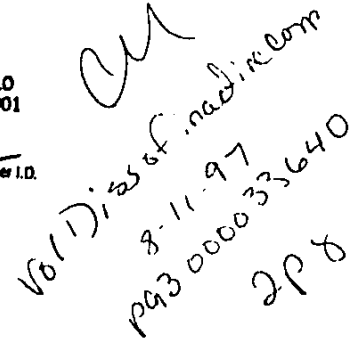 O
01
er I.D.
CM
Vol Diss of inactive Corp
8-11-97
P93000033640
2P8